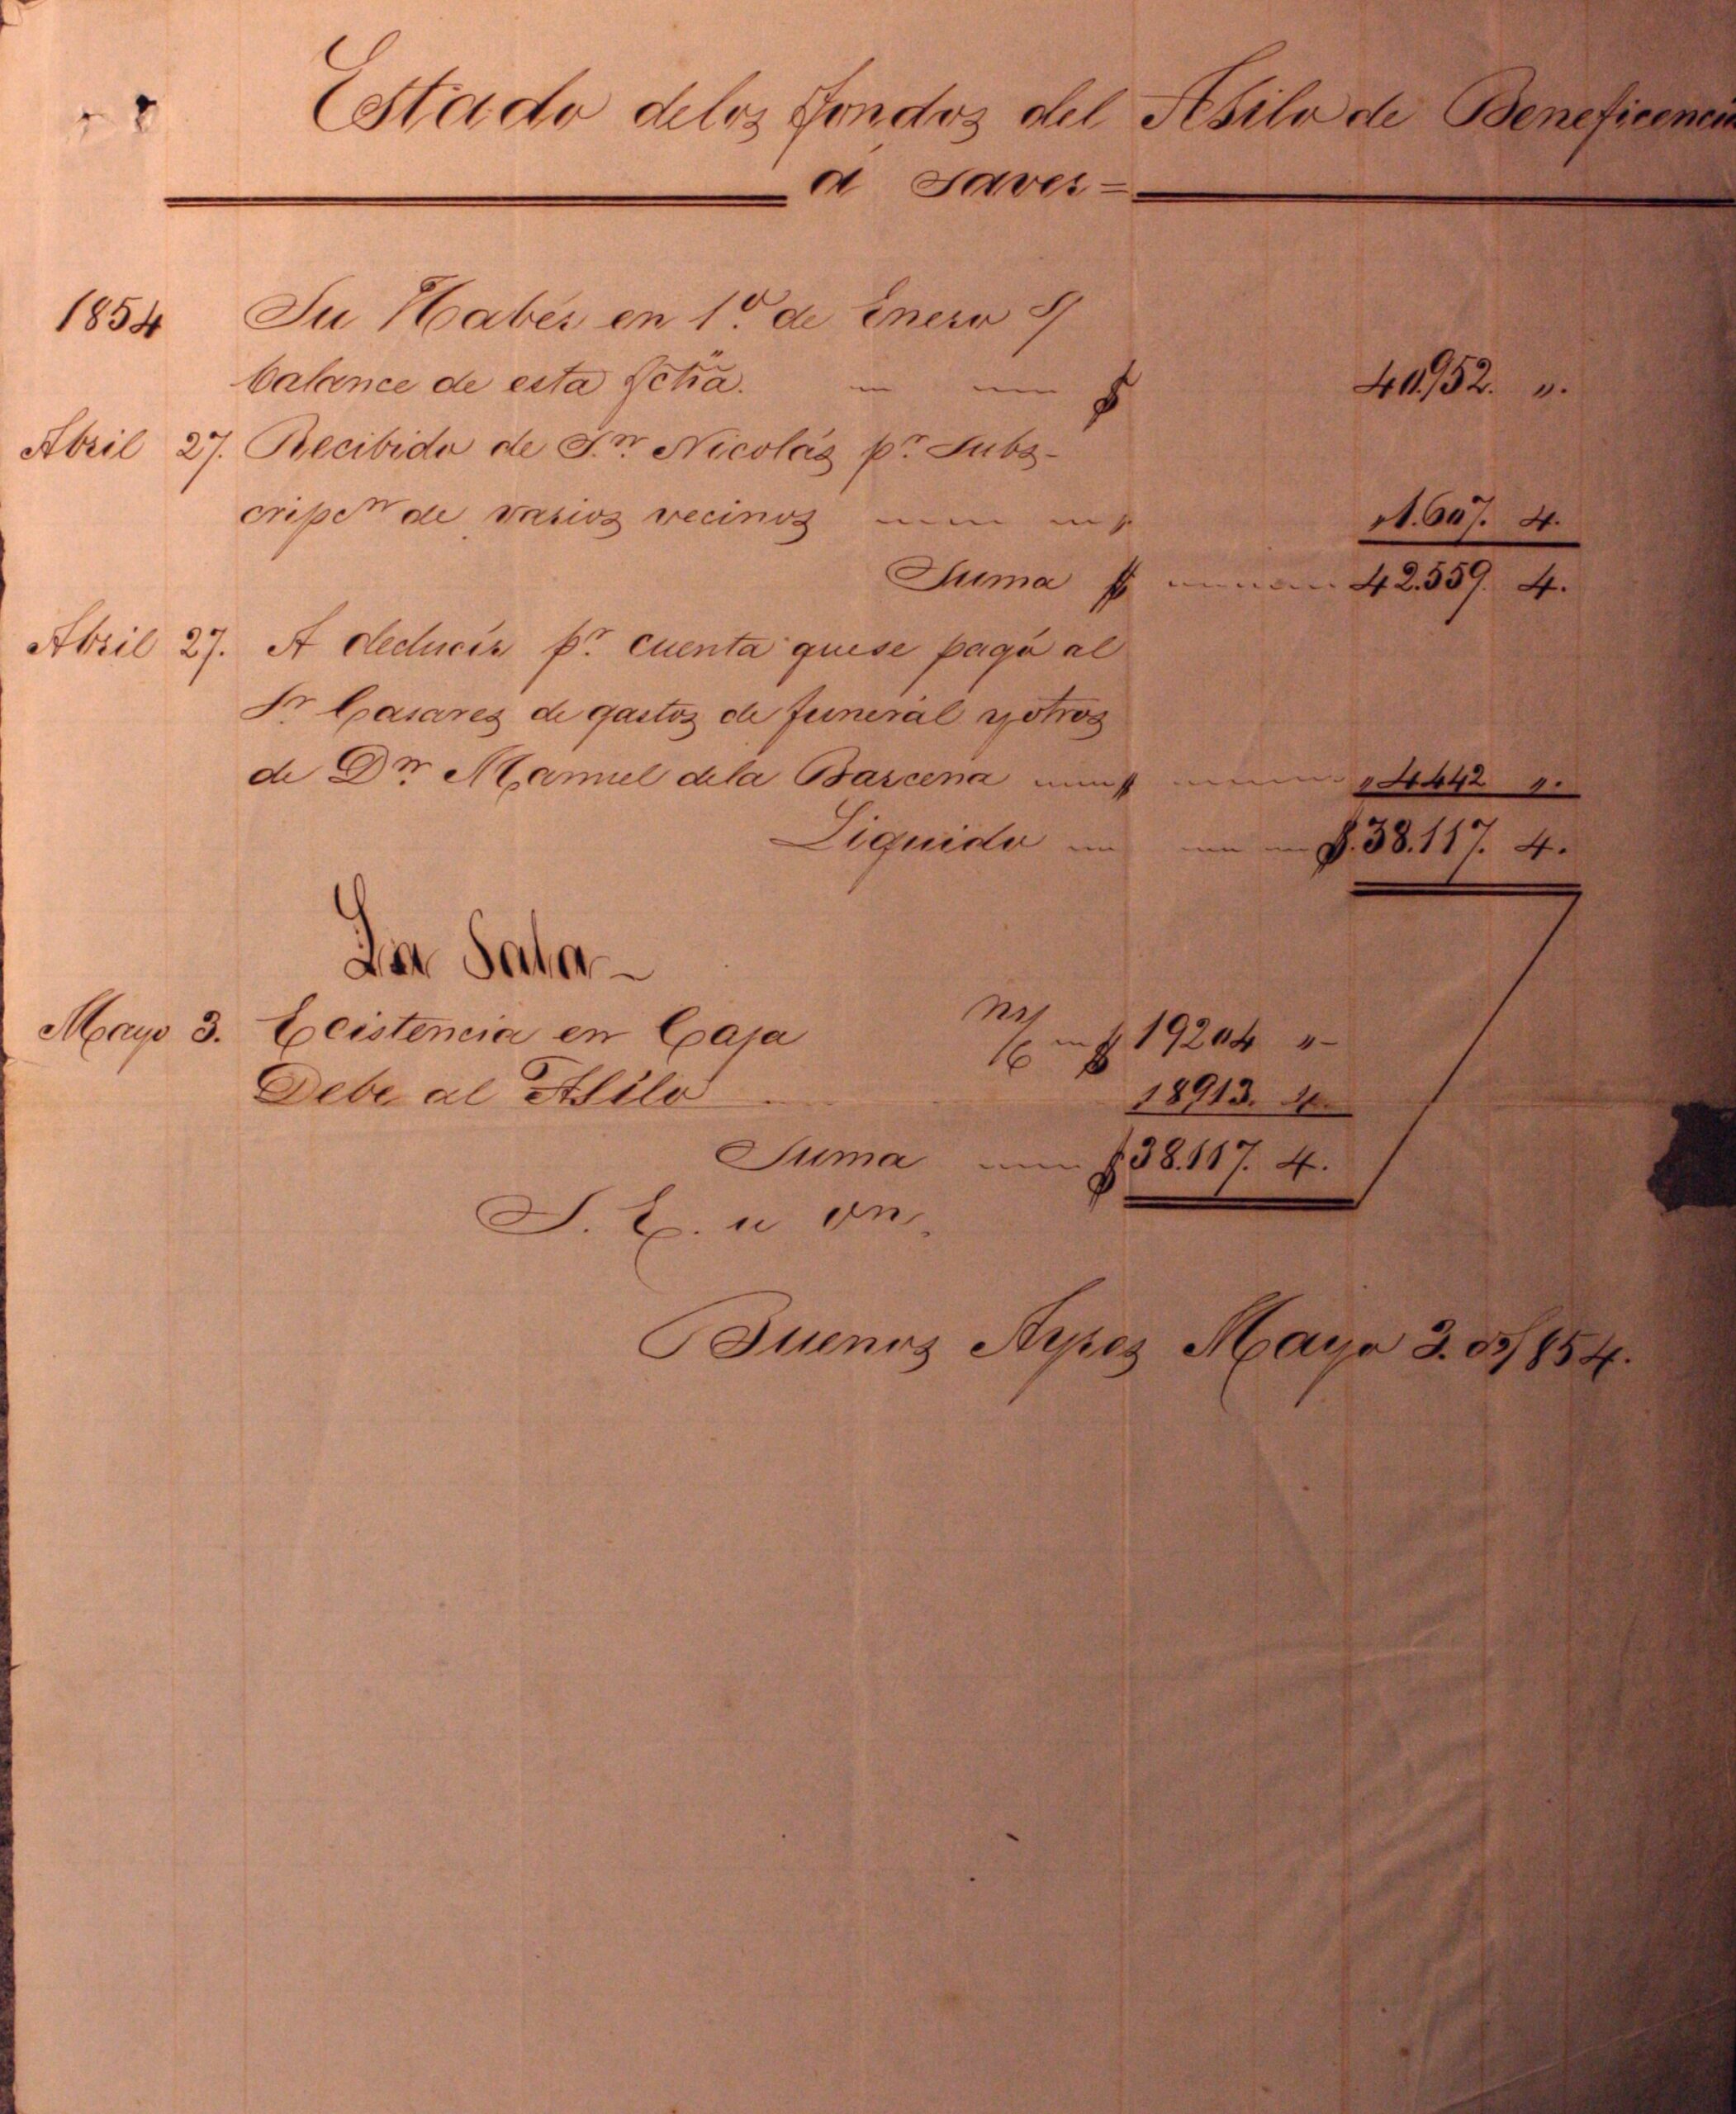 Estado delos fondos del Asilo de Beneficencia
á saver=
1854 Su Habér en 1º de Enero S/
balance de esta fcha. $ 40.952. ".
Abril 27. Recibido de S.n Nicolás pr. Subs-
cripcn de varios vecinos "1.607. 4.
Suma $ 42.559. 4.
Abril 27. A deducir pr. cuenta quese pagó al
Sr. Casares de gastos de funerál yotros
de Dn. Manuel dela Barcena $ "4442 ".
Liquido $.38.117. 4.
La Sala-
Mayo 3. Ecistencia en Caja m/c $ 19204 "-
Debe al Asilo 18913. 4.
Suma $38.117. 4.
S. E. u on.
Buenos Ayres Mayo 3. de/854.